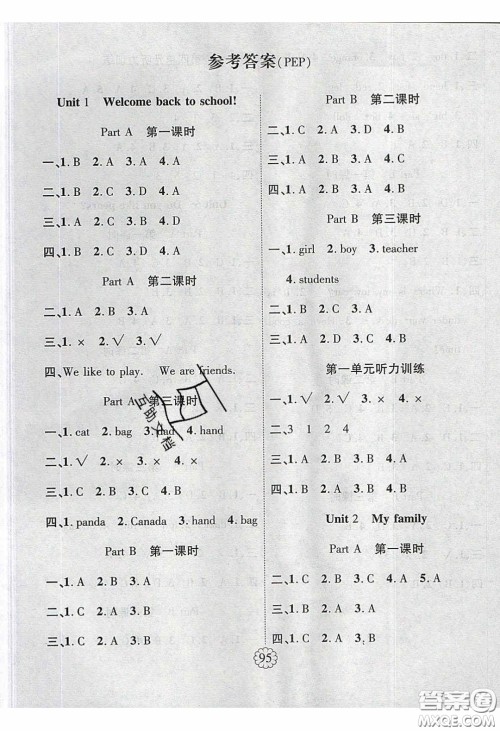 参考答案(PEP)
Unit 1 Welcome back to school!
Part A 第一课时
一、1. B 2. A 3. A 4. A
二、1. B 2. C 3. D 4. A
三、1. A 2. B 3. D 4. C
四、1. B 2. C 3. D 4. A
Part A 第二课时
二、1. B 2. A 3. A
三、1. × 2. √ 3. √
四、We like to play. We are friends.
Part A 第三课时
一、1. cat 2. bag 3. and 4. hand
二、1. √ 2. × 3. × 4. ×
三、1. C 2. A 3. D 4. B
四、1. panda 2. Canada 3. hand 4. bag
Part B 第一课时
一、1. A 2. B 3. A
二、1. B 2. A 3. B
三、1. C 2. A 3. B
Part B 第二课时
二、1. C 2. A 3. D 4. B
三、1. B 2. A 3. C
四、1. A 2. A 3. B 4. B
Part B 第三课时
一、1. girl 2. boy 3. teacher
4. students
二、1. B 2. C 3. A
三、1. D 2. C 3. A 4. B
第一单元听力训练
一、1. √ 2. × 3. × 4. √
二、3 1 2 4
三、1. B 2. A 3. A 4. B
Unit 2 My family
Part A 第一课时
二、1. C 2. B 3. A 4. A 5. A
三、1. A 2. B 3. B
四、1. C 2. A 3. B
95
互助文档
答案圈
MXQE.COM